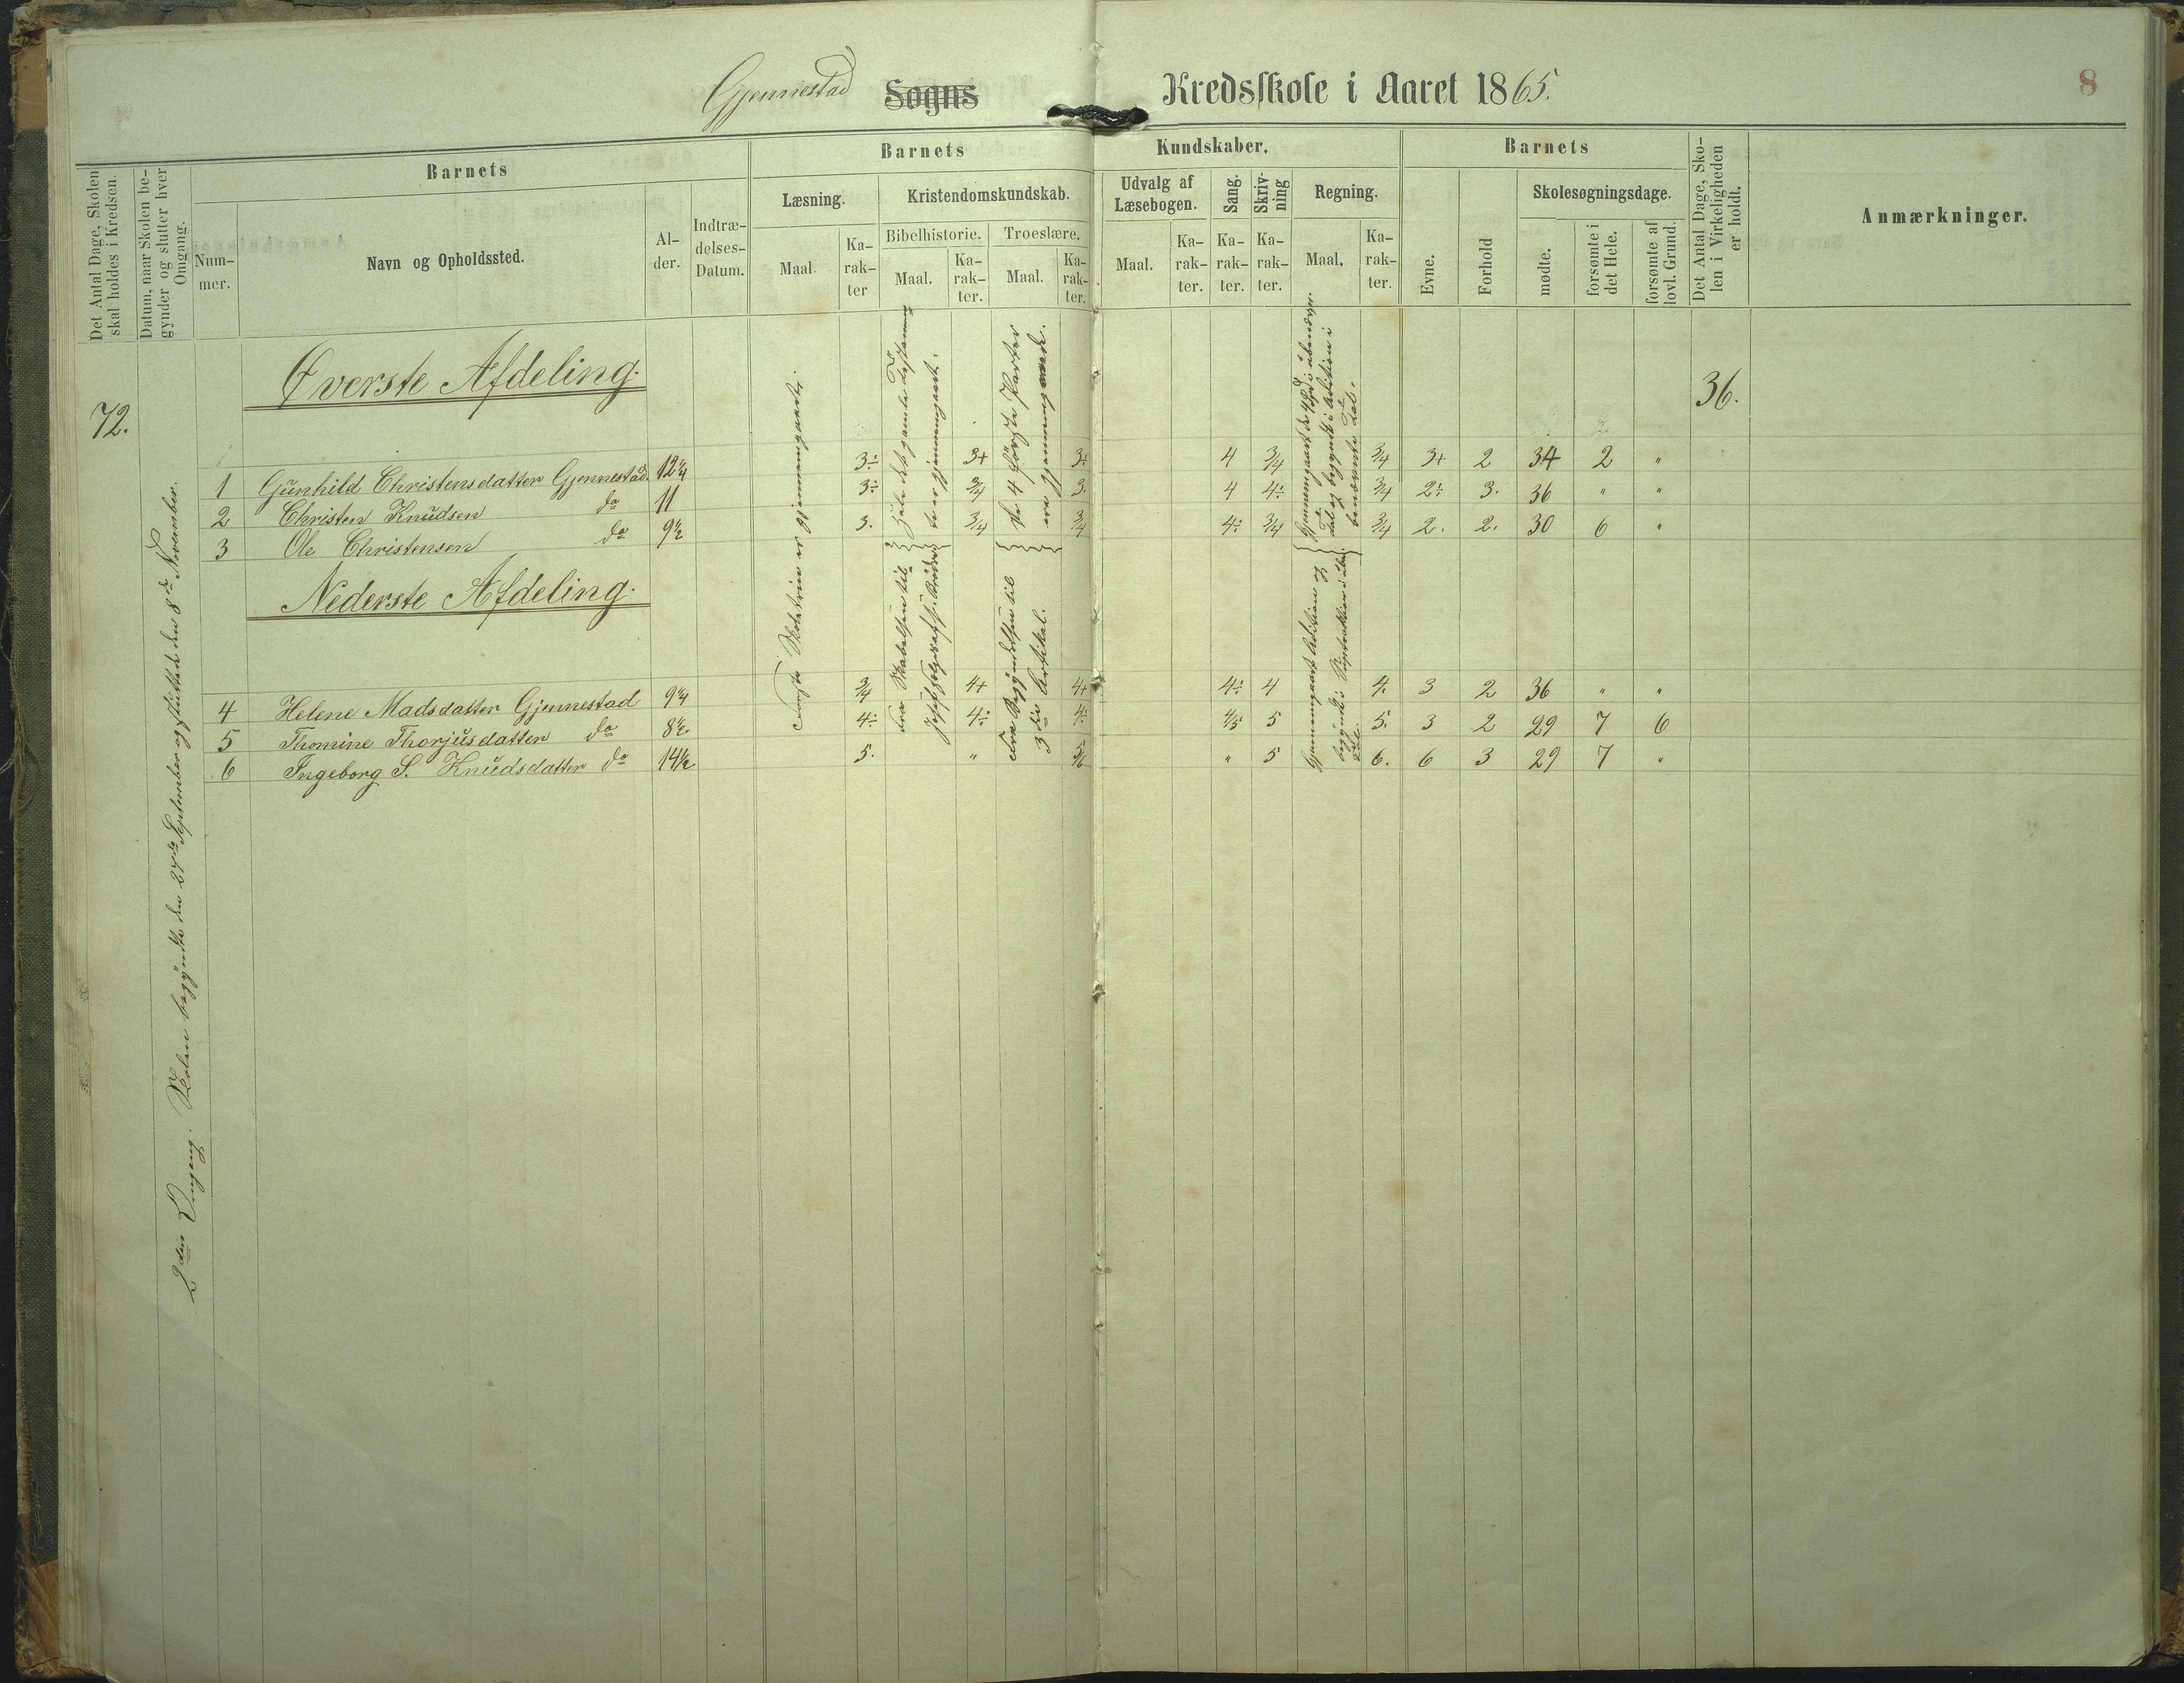 Gjennestad Sogns Kredsskole i Aaret 1865.
8
Det Antal Dage, Skolen skal holdes i Kredsen.
Datum, naar Skolen begynder og slutter hver Omgang.
Barnets
Nummer.
Navn og Opholdssted.
Alder.
Indtrædelses-Datum.
Barnets Kundskaber.
Læsning.
Maal.
Karakter
Kristendomskundskab.
Bibelhistorie.
Maal.
Karakter.
Troeslære.
Maal.
Karakter.
Udvalg af Læsebogen.
Maal.
Karakter.
Sang.
Karakter.
Skrivning
Karakter.
Regning.
Maal.
Karakter.
Barnets
Evne.
Forhold
Skolesøgningsdage.
mødte.
forsømte i det Hele.
forsømte af lovl. Grund.
Det Antal Dage, Skolen i Virkeligheden er holdt.
Anmærkninger.
72.
2den Omgang. Skolen begyndte den 27de September og sluttede den 8de November.
Øverste Afdeling.
36.
1 Gunhild Christensdatter Gjennestad. 12 1/4 3÷ 3+ 3÷ 4 3/4 3/4 3+ 2 34 2 "
2 Christen Knudsen do 11 3÷ 3/4 3. 4 4÷ 3/4 2÷ 3. 36 " "
3 Ole Christensen do 9 1/2 3. 3/4 3/4 4÷ 3/4 3/4 2. 2. 30 6 "
Nederste Afdeling.
4 Helene Madsdatter Gjennestad 9 1/4 3/4 4+ 4+ 4÷ 4 4. 3 2 36 " "
5 Thomine Thorjusdatter do 8 1/2 4÷ 4÷ 4÷ 4/5 5 5. 3 2 29 7 6
6 Ingeborg S. Knudsdatter do 14 1/2 5. " 5/6 " 5 6. 6 3 29 7 "
Første Skoletrin er gjennemgaaet.
Hele det gamle Testamente er gjennemgaaet.
De 4 første Parter ere gjennemgaaede.
Fra Skabelsen til
Fra Begyndelsen til
3die Artikel.